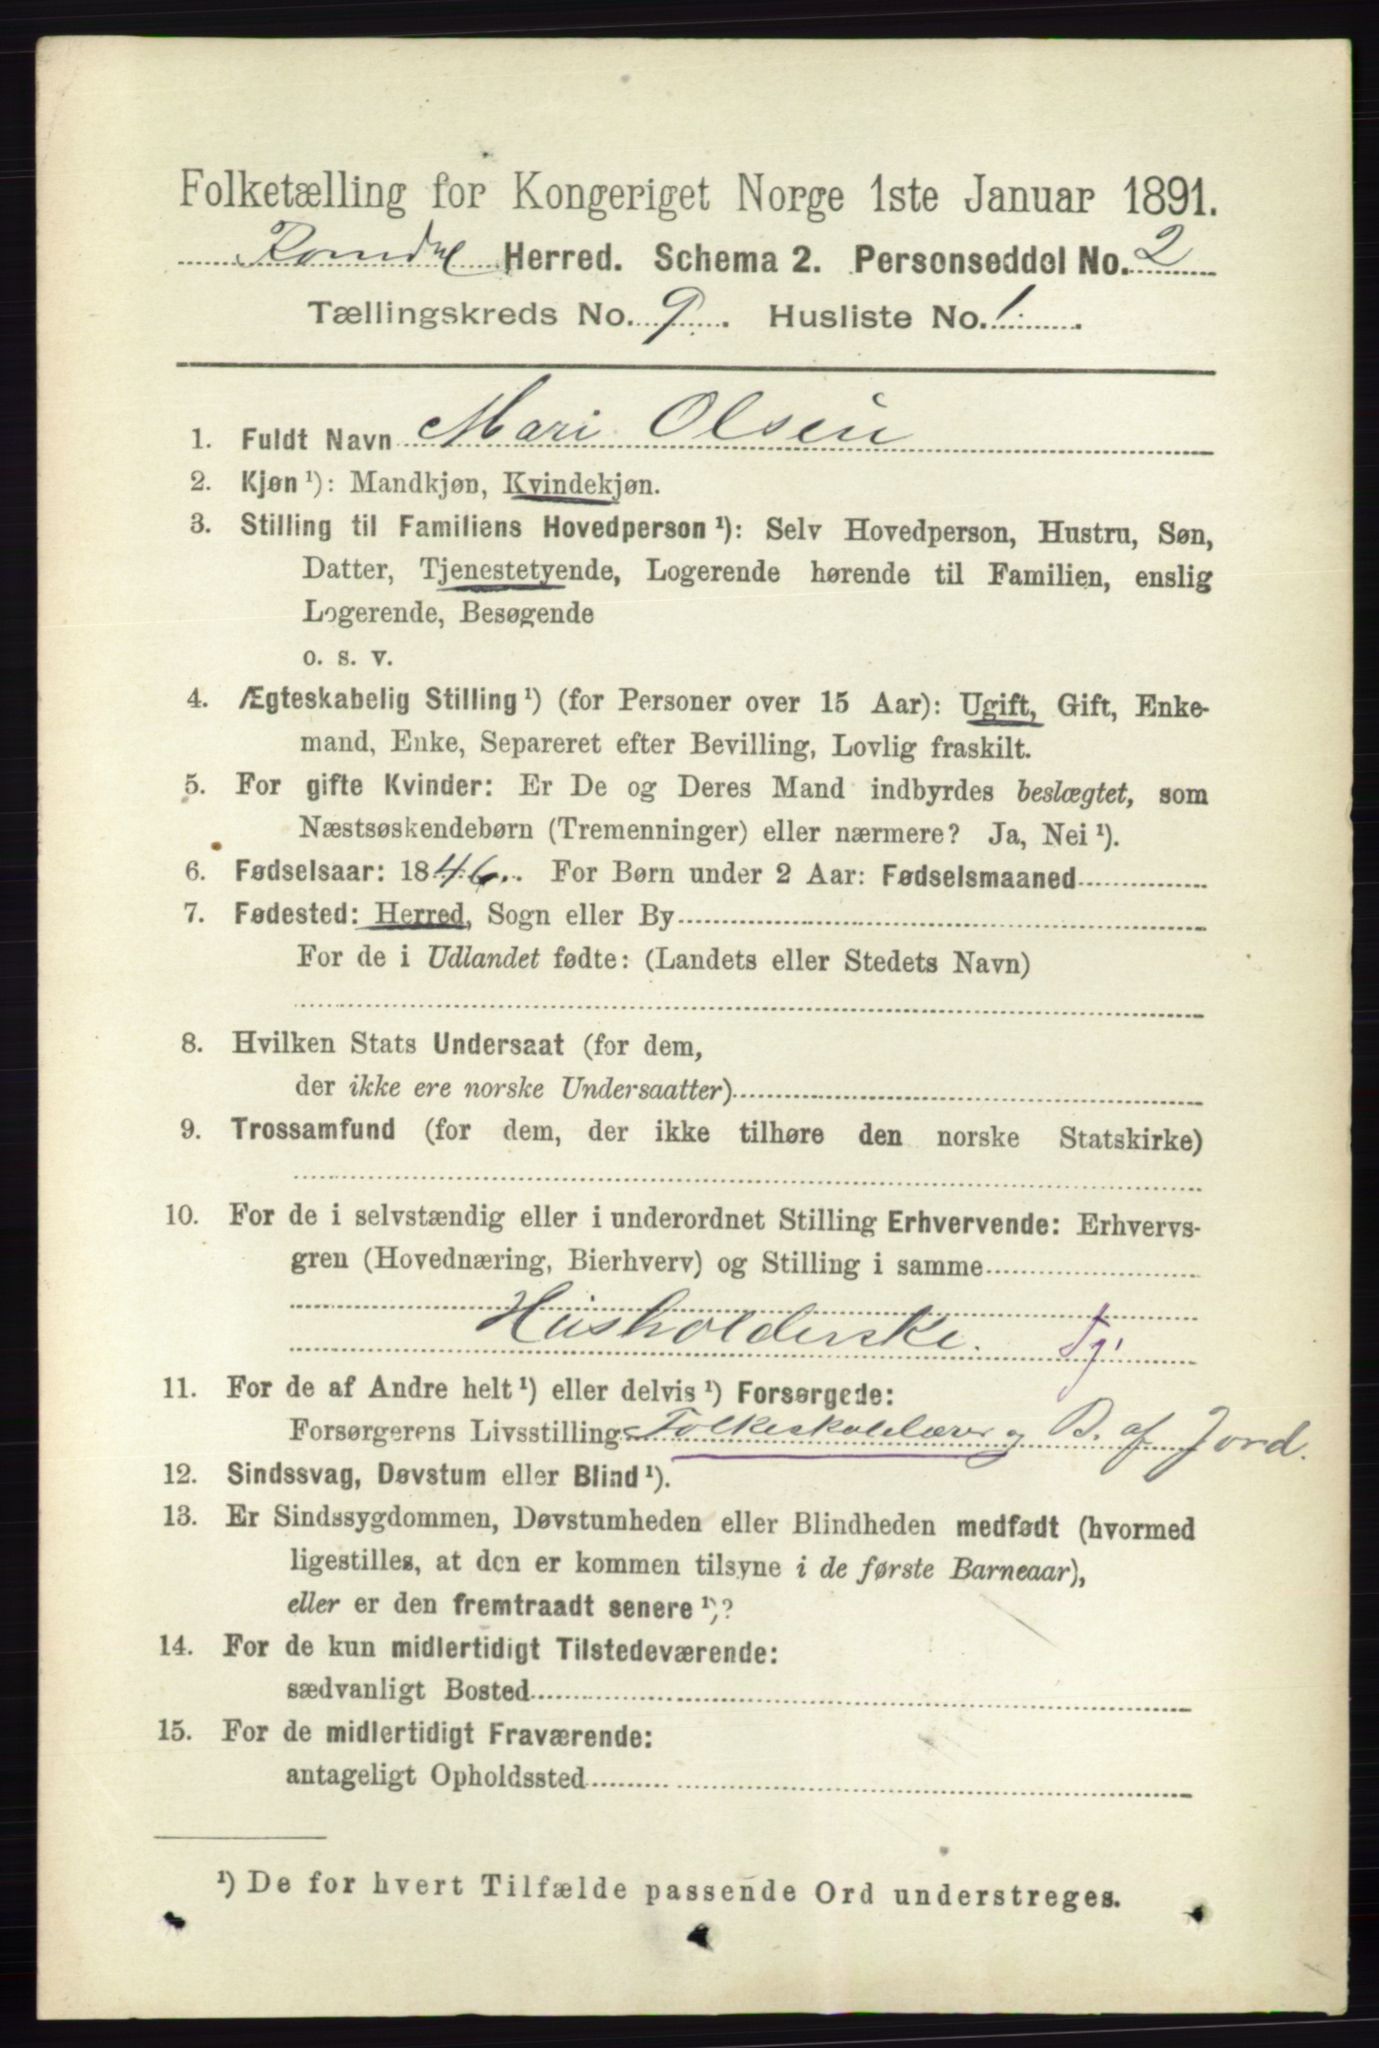 Folketælling for Kongeriget Norge 1ste Januar 1891.
Romedal Herred. Schema 2. Personseddel No. 2
Tællingskreds No. 9. Husliste No. 1.
1. Fuldt Navn Mari Olsen
2. Kjøn ¹): Mandkjøn, Kvindekjøn.
3. Stilling til Familiens Hovedperson ¹): Selv Hovedperson, Hustru, Søn,
Datter, Tjenestetyende, Logerende hørende til Familien, enslig
Logerende, Besøgende
o. s. v.
4. Ægteskabelig Stilling ¹) (for Personer over 15 Aar): Ugift, Gift, Enke-
mand, Enke, Separeret efter Bevilling, Lovlig fraskilt.
5. For gifte Kvinder: Er De og Deres Mand indbyrdes beslægtet, som
Næstsøskendebørn (Tremenninger) eller nærmere? Ja, Nei ¹).
6. Fødselsaar: 1846. For Børn under 2 Aar: Fødselsmaaned
7. Fødested: Herred, Sogn eller By
For de i Udlandet fødte: (Landets eller Stedets Navn)
8. Hvilken Stats Undersaat (for dem,
der ikke ere norske Undersaatter)
9. Trossamfund (for dem, der ikke tilhøre den norske Statskirke)
10. For de i selvstændig eller i underordnet Stilling Erhvervende: Erhvervs-
gren (Hovednæring, Bierhverv) og Stilling i samme
Husholderske. Tj.
11. For de af Andre helt ¹) eller delvis ¹) Forsørgede:
Forsørgerens Livsstilling Folkeskolelærer og B. af Jord.
12. Sindssvag, Døvstum eller Blind ¹).
13. Er Sindssygdommen, Døvstumheden eller Blindheden medfødt (hvormed
ligestilles, at den er kommen tilsyne i de første Barneaar),
eller er den fremtraadt senere ¹)?
14. For de kun midlertidigt Tilstedeværende:
sædvanligt Bosted
15. For de midlertidigt Fraværende:
antageligt Opholdssted
¹) De for hvert Tilfælde passende Ord understreges.